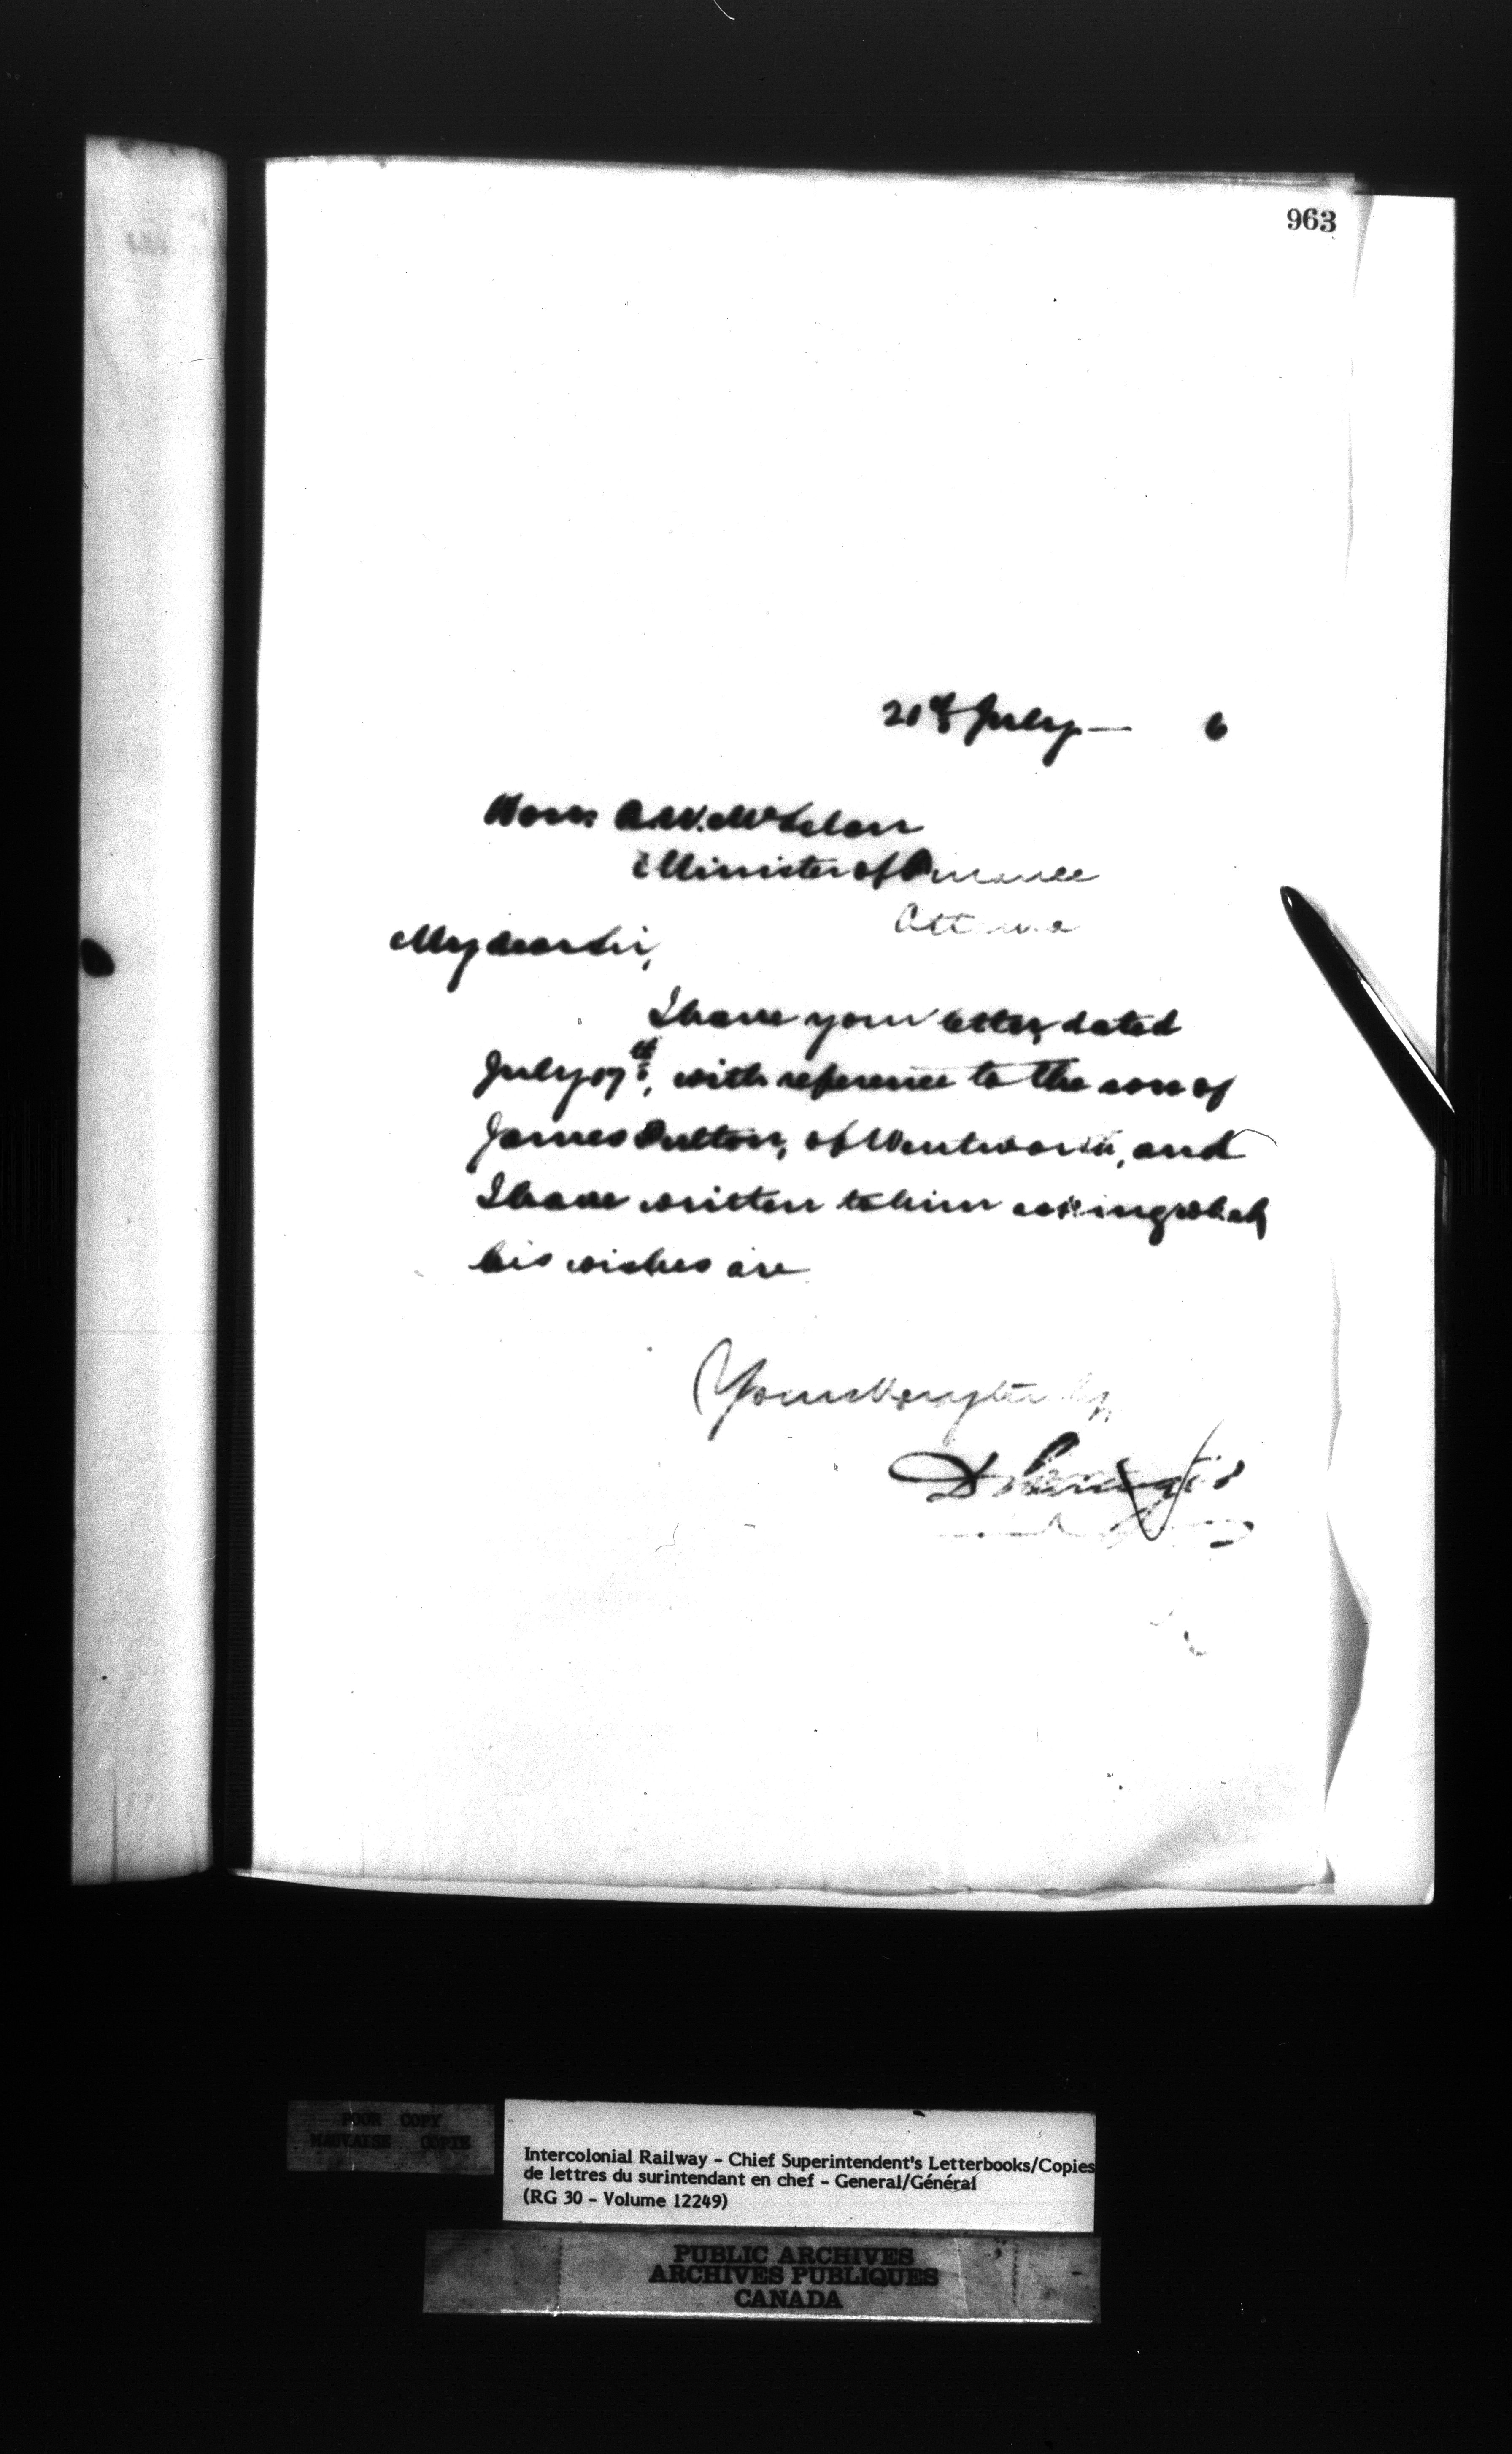 963
21st July — 6
Hon. A.W. McLelan
Minister of Finance
Ottawa
My dear Sir,
I have your letter, dated
July 17th, with reference to the son of
James Fulton, of Wentworth, and
I have written to him asking what
his wishes are
Yours very truly,
D Pottinger
POOR COPY
MAUVAISE COPIE
Intercolonial Railway - Chief Superintendent's Letterbooks/Copies
de lettres du surintendant en chef - General/Général
(RG 30 - Volume 12249)
PUBLIC ARCHIVES
ARCHIVES PUBLIQUES
CANADA